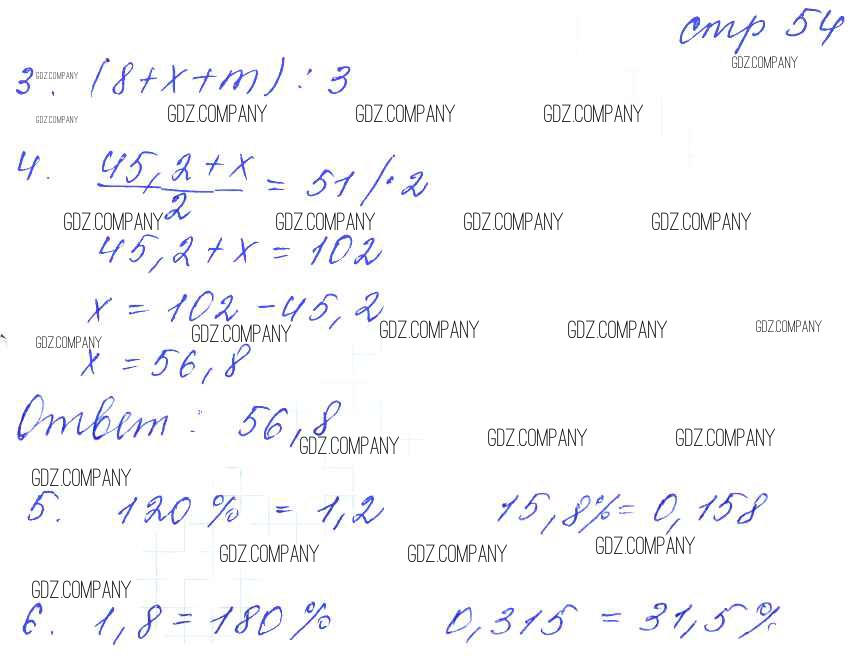 стр 54
GDZ.COMPANY
3. (8+x+m) : 3
GDZ.COMPANY
GDZ.COMPANY GDZ.COMPANY GDZ.COMPANY GDZ.COMPANY
4. 45,2+x / 2 = 51 /·2
GDZ.COMPANY GDZ.COMPANY GDZ.COMPANY GDZ.COMPANY
45,2+x = 102
x = 102 - 45,2
GDZ.COMPANY GDZ.COMPANY GDZ.COMPANY GDZ.COMPANY GDZ.COMPANY
x = 56,8
Ответ: 56,8
GDZ.COMPANY GDZ.COMPANY GDZ.COMPANY
GDZ.COMPANY
5. 120% = 1,2 15,8% = 0,158
GDZ.COMPANY GDZ.COMPANY GDZ.COMPANY
GDZ.COMPANY
6. 1,8 = 180% 0,315 = 31,5%